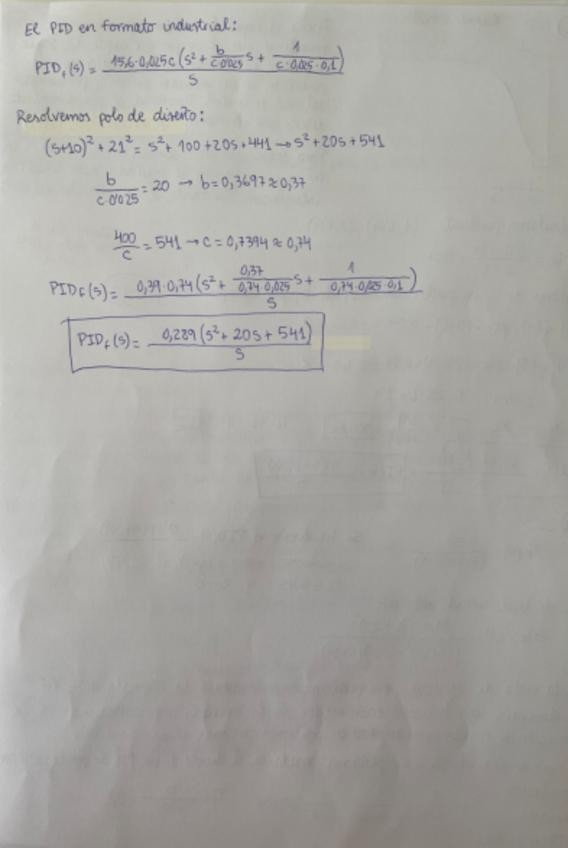 El PID en formato industrial:
PIDf(s) = 15,6·0,025c (s² + b/(c·0'025) s + 1/(c·0,025·0,1)) / s
Resolvemos polo de diseño:
(s+10)² + 21² = s² + 100 + 20s + 441 → s² + 20s + 541
b/(c·0'025) = 20 → b = 0,3697 ≈ 0,37
400/c = 541 → c = 0,7394 ≈ 0,74
PIDf(s) = 0,39·0,74 (s² + 0,37/(0,74·0,025) s + 1/(0,74·0,025·0,1)) / s
PIDf(s) = 0,289 (s² + 20s + 541) / s